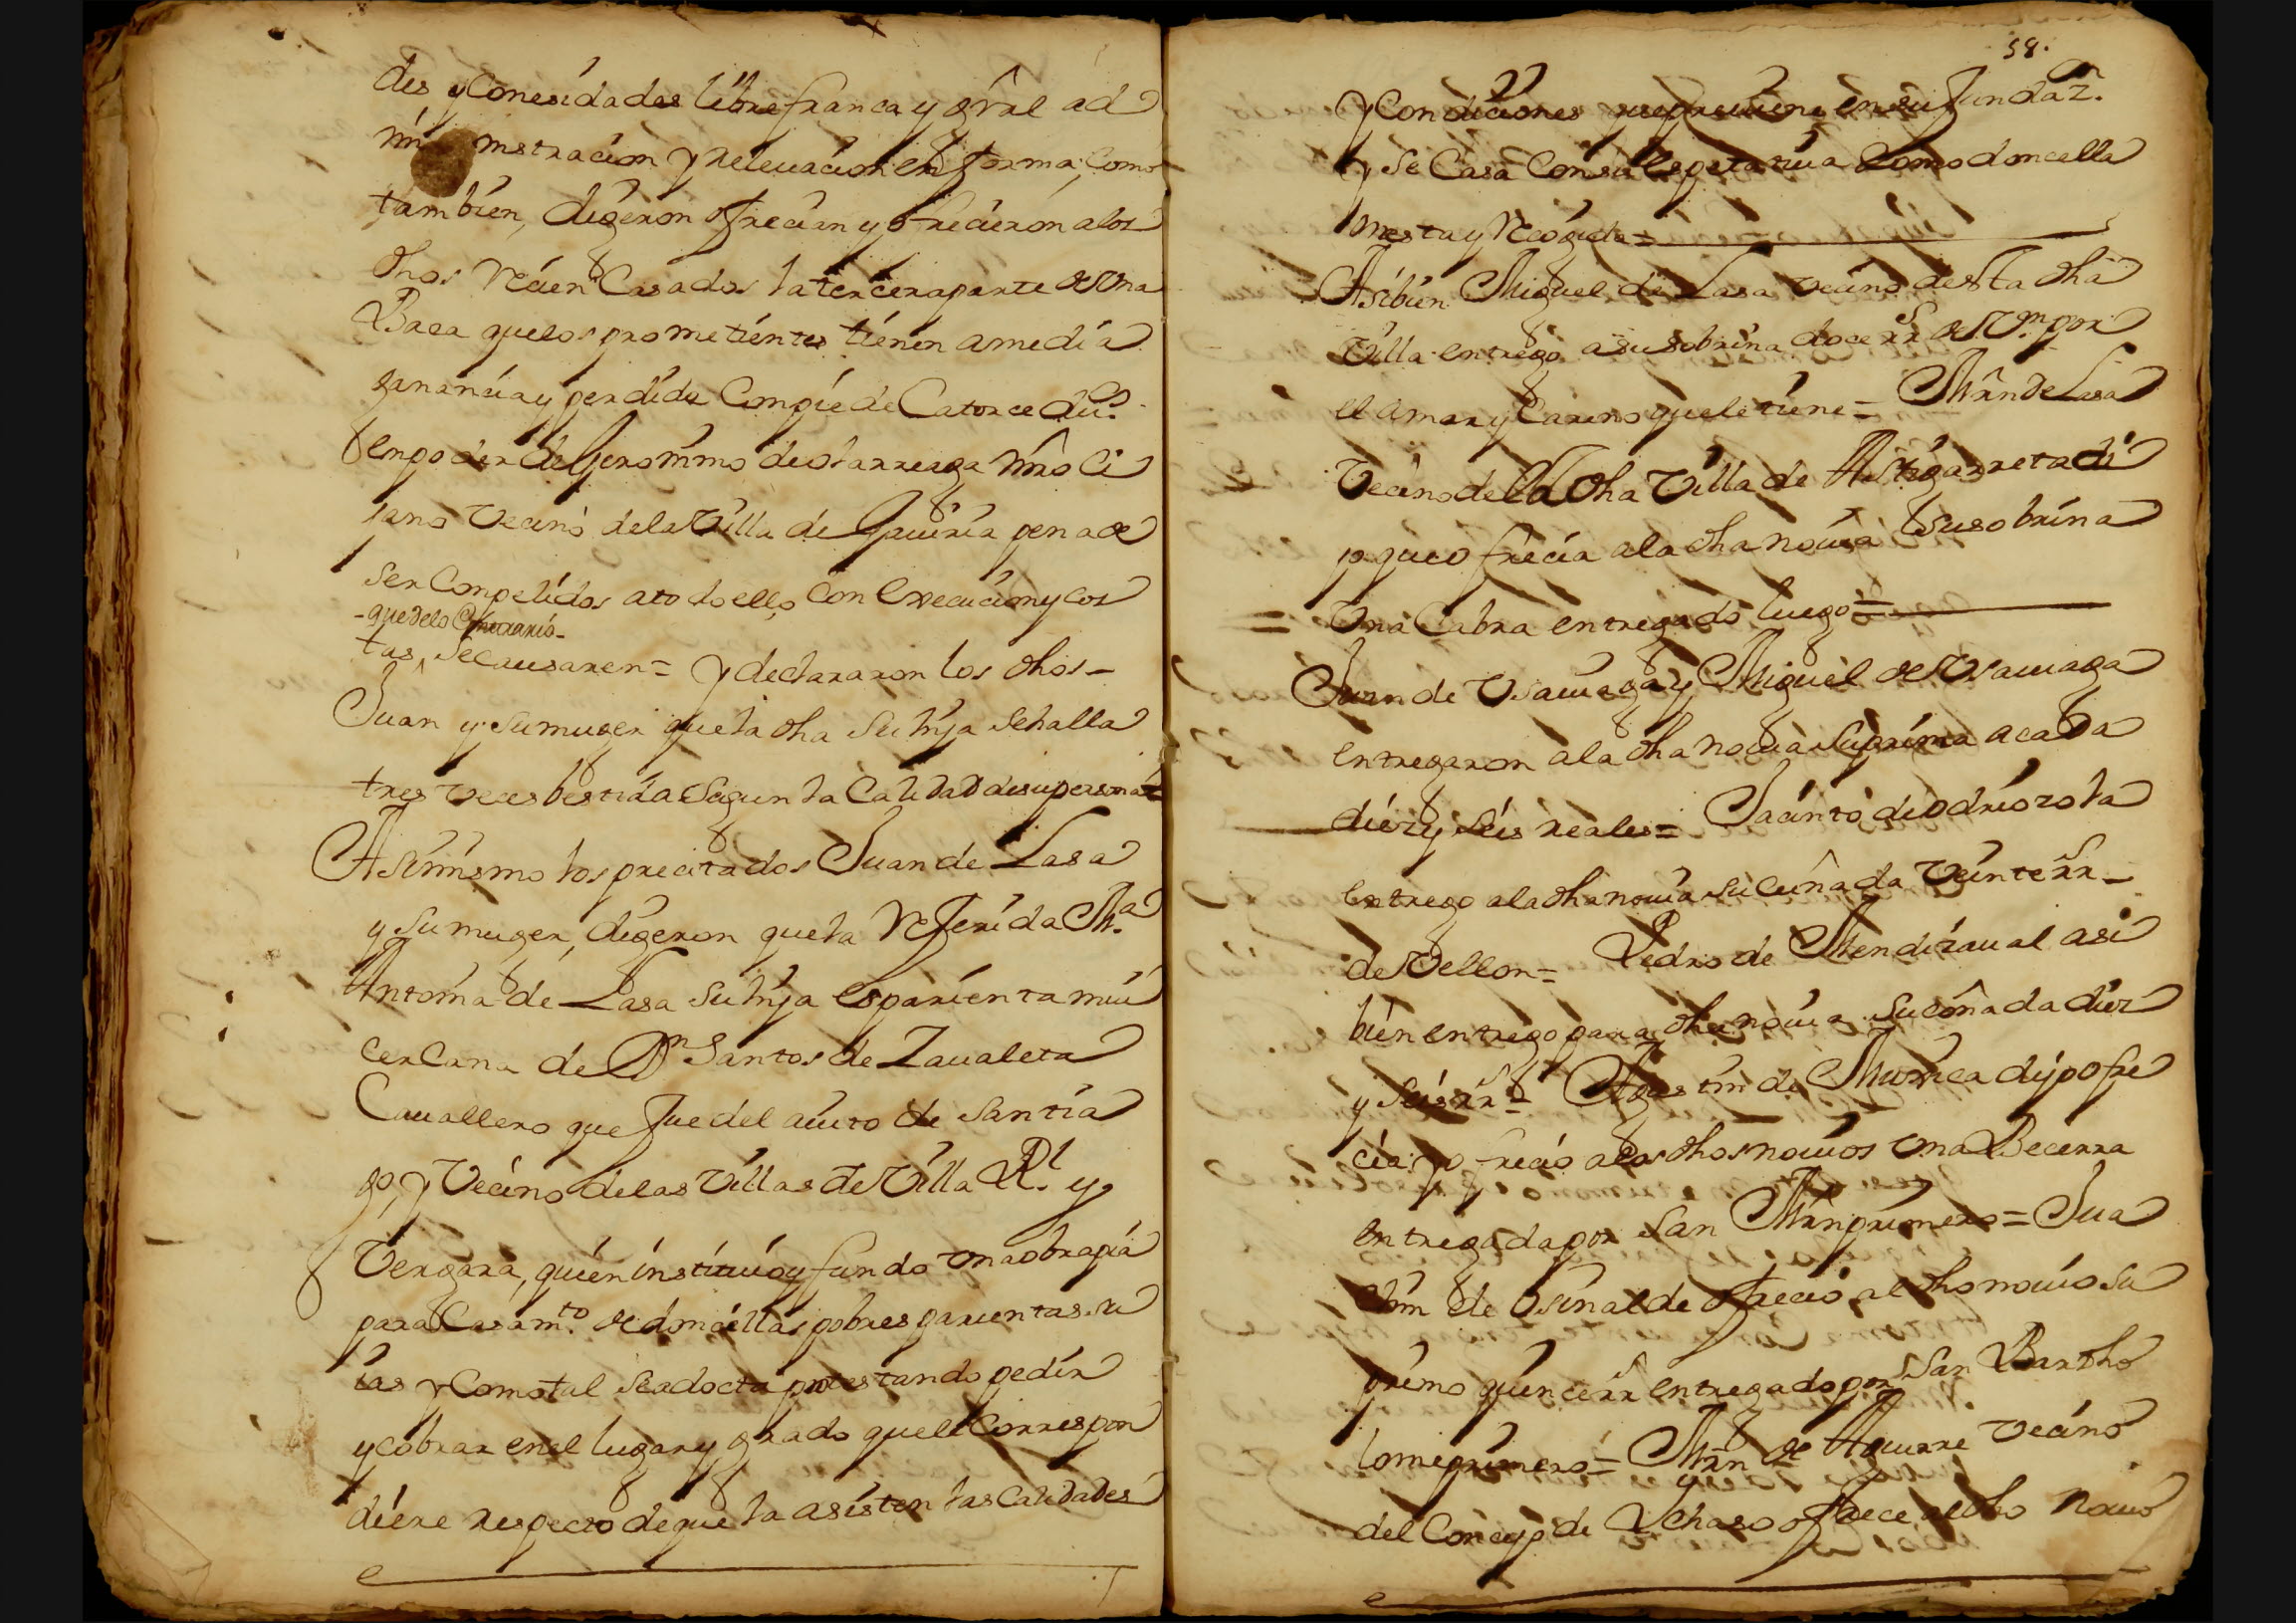 des y Conexidades libre franca y gral ad
mi nistracion y relevacion en forma; Como
tambien, digeron ofrecian y ofrecieron alos
dhos Reçien Casados la tercera parte de una
Baca que los prometientes tienen a media
ganancia y perdida Con pie de Catorce du.s
en poder de Geronimo de olarreaga mro Ci
jano Vecino dela Villa de Gaviria pena de
ser Conpelidos a todo ello Con Execucion y cos
-que delo Contrario-
tas, se causaren = Y declararon los dhos-
Juan y su muger que la dha su hija se halla
tres veces bestida segun la Calidad de su persona =
Asimismo los precitados Juan de Lasa
y su muger, digeron que la Referida M.a
Antonia de Lasa su hija es parienta mui
cercana de Dn Santos de Zavaleta
Cavallero que fue del avito de Santia
go, y Vecino delas Villas de Villa Rl. y
Vergara, quien instituió y fundo una obra pia
para Casam.to de doncellas pobres parientas su
ias y Como tal se adocta protestando pedir
y cobrar en el lugar y grado que le Corrrespon
diere respecto de que la asisten las Calidades
58.
y Condiciones que previene en su fundaz.on
y se Casa Con su Espetativa Como doncella
onesta y Recogida =
Asibien Miguel de Lasa vecino desta dha
Villa entrego a su sobrina doce rr.s de V.on por
el amor y Carino que le tiene = Mrn de Lasa
Vecino de la dha Villa de Astigarreta di
jo que ofrecia ala dha novia su sobrina
= Una Cabra entregado luego =
Juan de Usavaga y Miguel de Usavaga
entregaron ala dha novia su prima a cada
diez y seis reales = Jacinto de odriozola
entrego ala dha novia su cuñada Veinte rr.s-
de Vellon = Pedro de Mendizaual asi
bien entrego para dha novia su cuñada diez
y seis rr.s = Agustin de Munica dijo ofre
cia y ofrecio alos dhos novios una Becerra
entregada por San Mrn primero = Jua
chin de Osinalde ofrecio al dho novio su
primo quince rr.s entregado por San Bartho
lome primero = Mrn de Aguirre vecino
del Concejo de Ychaso ofrece al dho novio